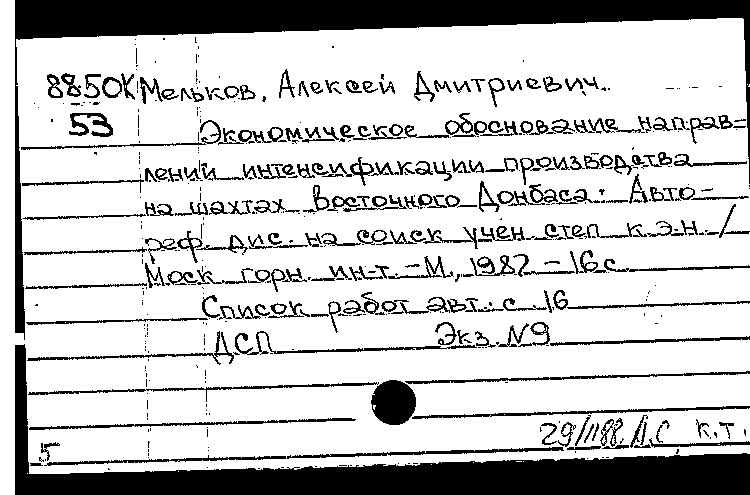 8850К Мельков, Алексей Дмитриевич.
53 Экономическое обоснование направ=
лений интенсификации производства
на шахтах Восточного Донбаса: Авто-
реф. дис. на соиск учен степ к.э.н. /
Моск горн. ин-т. - М., 1987 - 16 с.
Список работ авт.: с. 16
ДСП Экз. №9
29/1188. Д.С к.т.
5